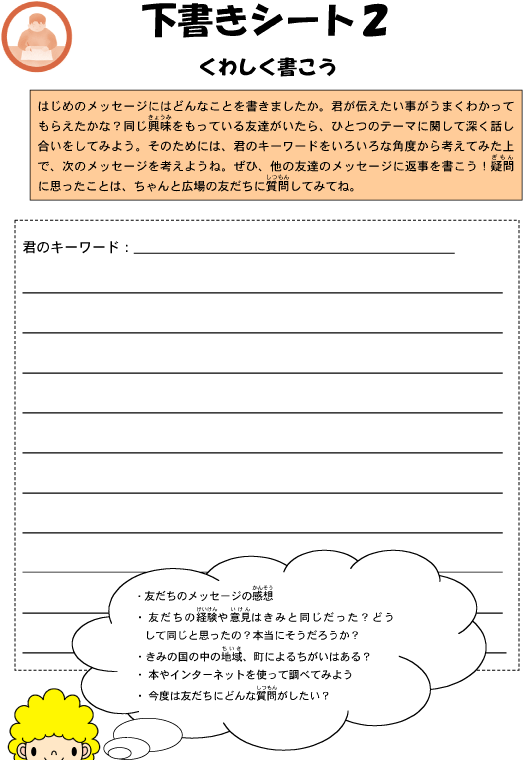 下書きシート２
くわしく書こう
はじめのメッセージにはどんなことを書きましたか。君が伝えたい事がうまくわかって
きょうみ
もらえたかな？同じ興味をもっている友達がいたら、ひとつのテーマに関して深く話し
合いをしてみよう。そのためには、君のキーワードをいろいろな角度から考えてみた上
ぎもん
で、次のメッセージを考えようね。ぜひ、他の友達のメッセージに返事を書こう！疑問
しつもん
に思ったことは、ちゃんと広場の友だちに質問してみてね。
君のキーワード：
かんそう
・友だちのメッセージの感想
けいけん いけん
・友だちの経験や意見はきみと同じだった？どう
して同じと思ったの？本当にそうだろうか？
ちいき
・きみの国の中の地域、町によるちがいはある？
・本やインターネットを使って調べてみよう
しつもん
・今度は友だちにどんな質問がしたい？